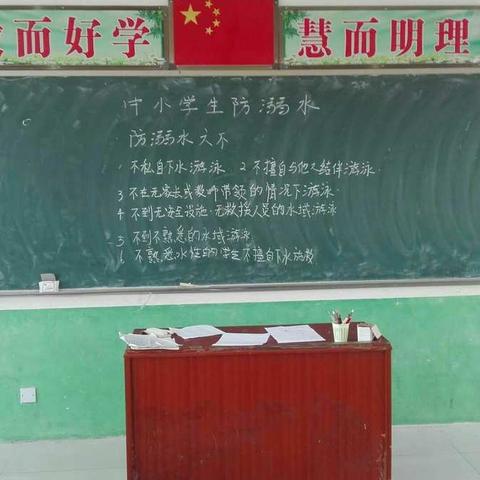 而好学
慧而明理
中小学生防溺水
防溺水六不
1 不私自下水游泳 2 不擅自与他人结伴游泳
3 不在无家长或教师带领的情况下游泳
4 不到无安全设施、无救援人员的水域游泳
5 不到不熟悉的水域游泳
6 不熟悉水性的学生不擅自下水施救